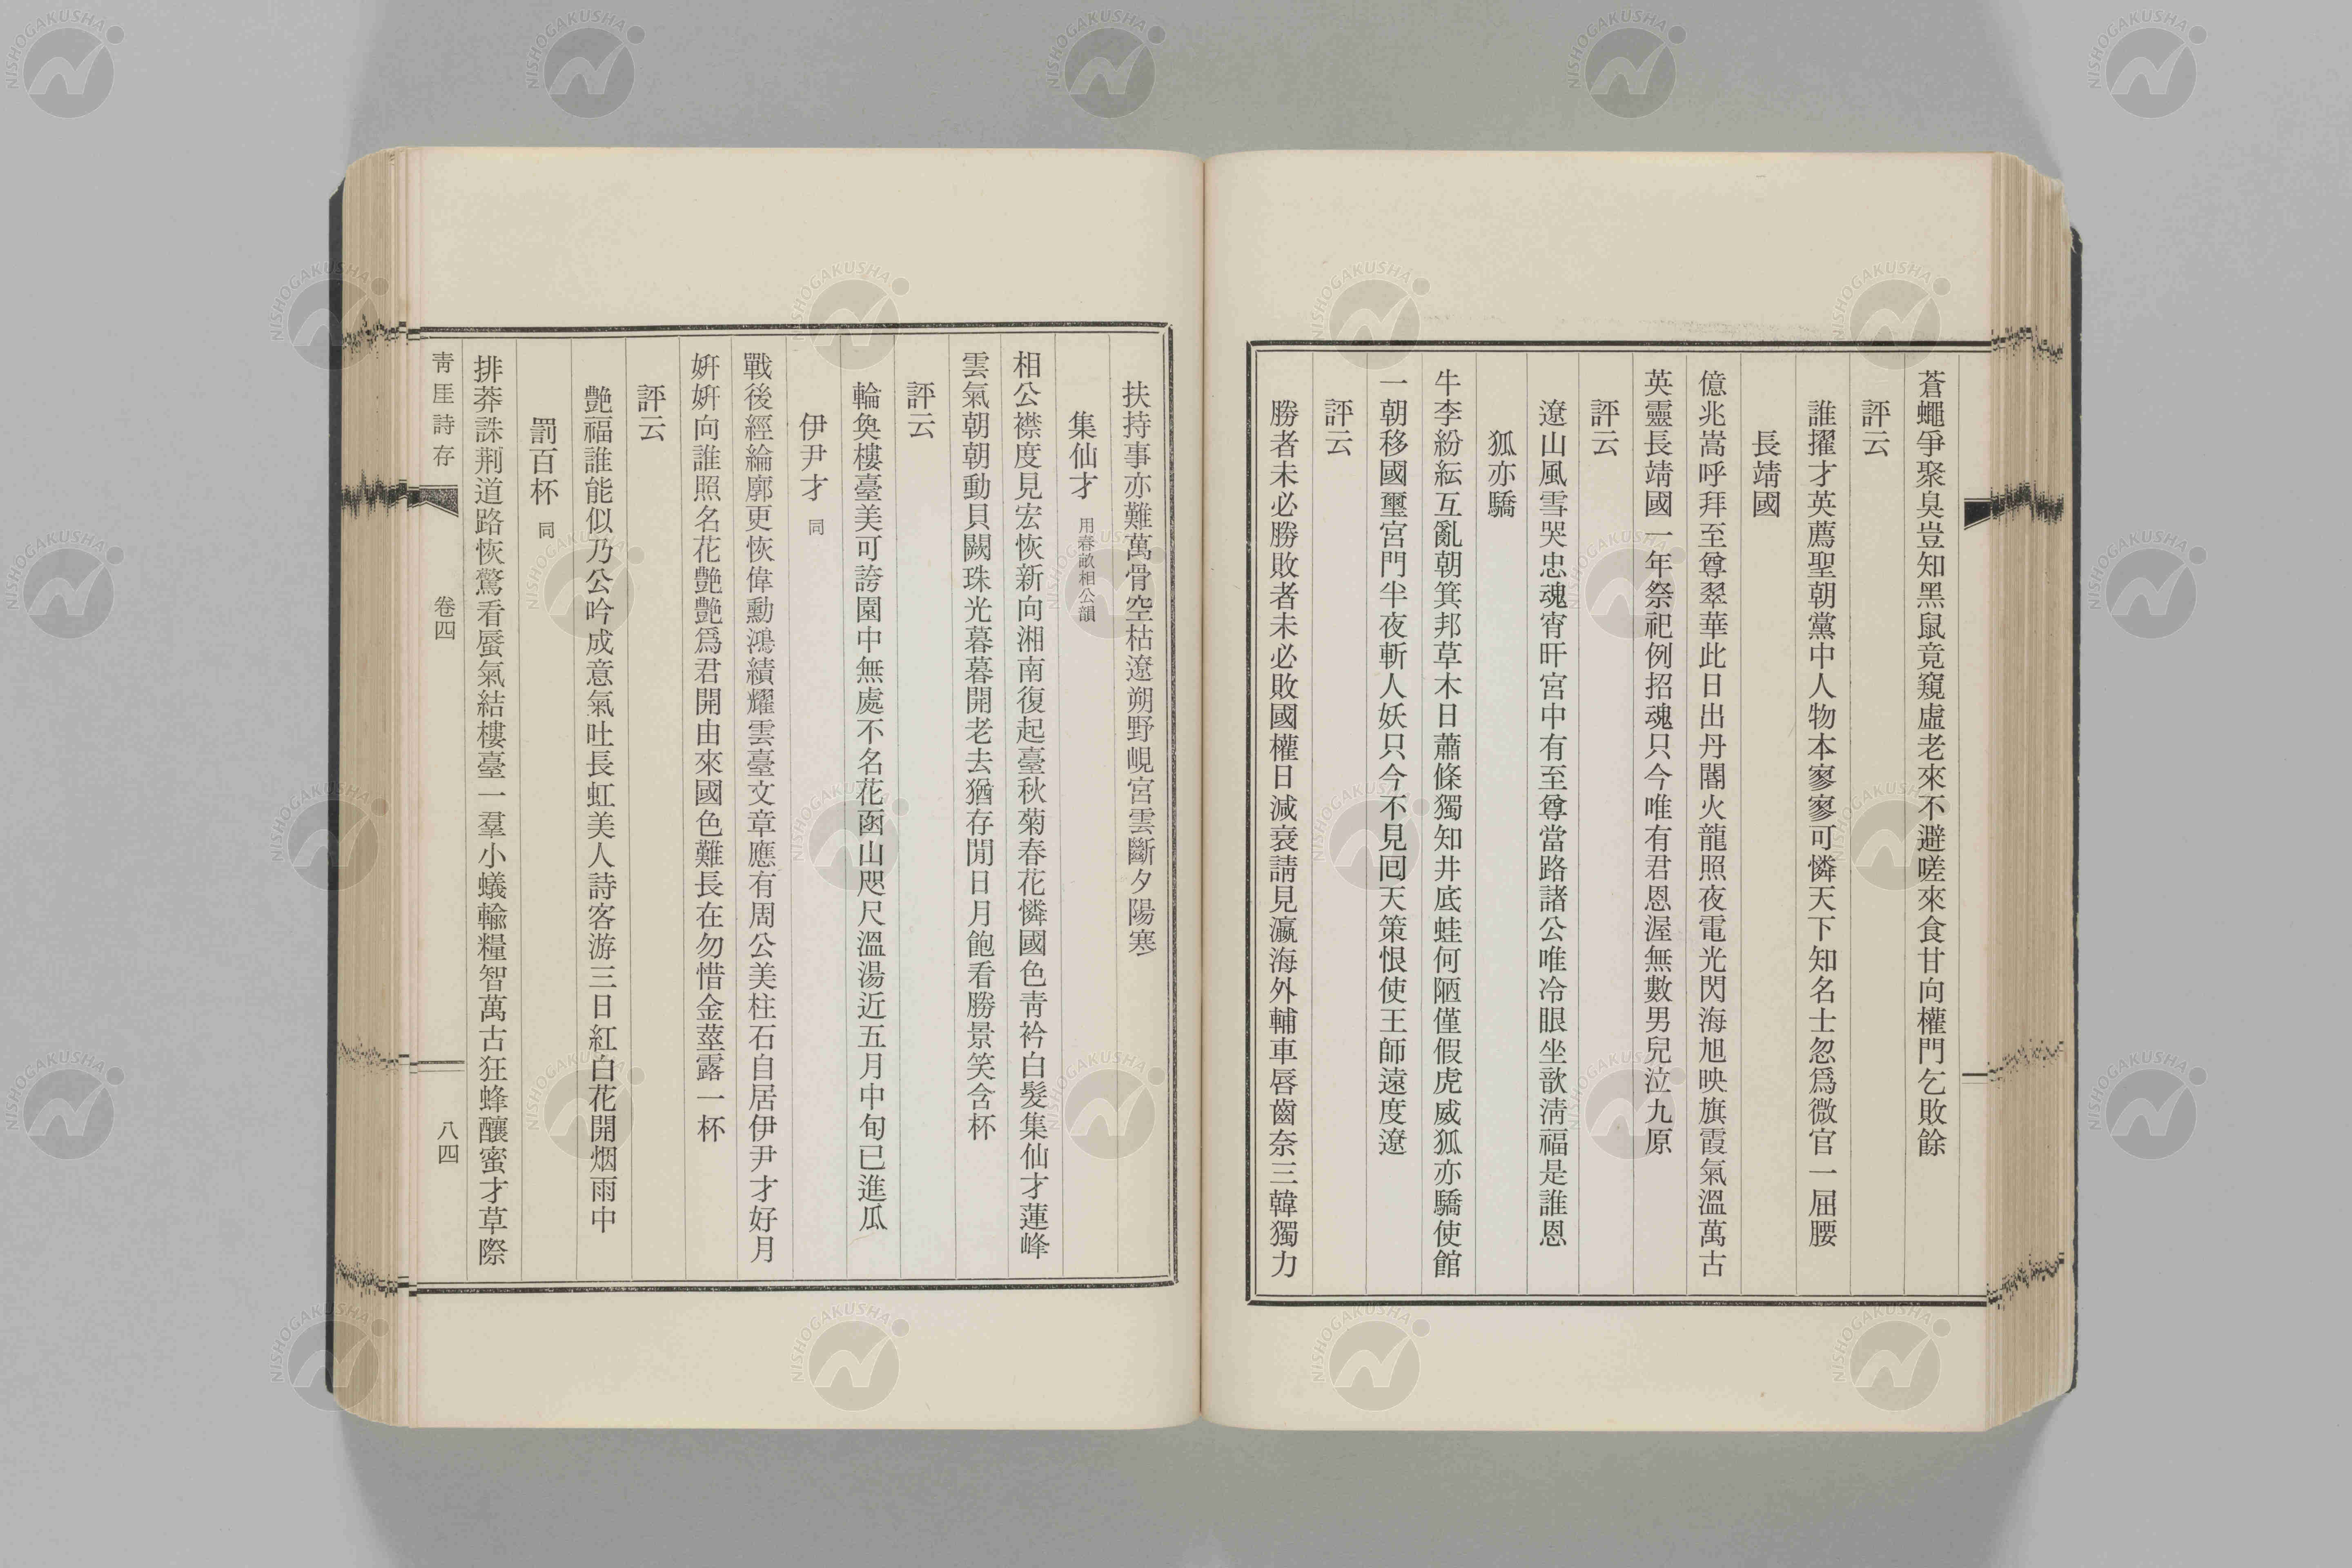 蒼蠅爭聚臭豈知黑鼠竟窺虛老來不避嗟來食甘向權門乞敗餘
評云
誰擢才英薦聖朝黨中人物本寥寥可憐天下知名士忽爲微官一屈腰
長靖國
億兆嵩呼拜至尊翠華此日出丹閣火龍照夜電光閃海旭映旗霞氣溫萬古
英靈長靖國一年祭祀例招魂只今唯有君恩渥無數男兒泣九原
評云
遼山風雪哭忠魂宵旰宮中有至尊當路諸公唯冷眼坐歌淸福是誰恩
狐亦驕
牛李紛紜互亂朝箕邦草木日蕭條獨知井底蛙何陋僅假虎威狐亦驕使館
一朝移國璽宮門半夜斬人妖只今不見回天策恨使王師遠度遼
評云
勝者未必勝敗者未必敗國權日減衰請見瀛海外輔車唇齒奈三韓獨力
扶持事亦難萬骨空枯遼朔野峴宮雲斷夕陽寒
集仙才 用春畝相公韻
相公襟度見宏恢新向湘南復起臺秋菊春花憐國色靑衿白髮集仙才蓮峰
雲氣朝朝動貝闕珠光暮暮開老去猶存閒日月飽看勝景笑含杯
評云
輪奐樓臺美可誇園中無處不名花函山咫尺溫湯近五月中旬已進瓜
伊尹才 同
戰後經綸廓更恢偉勳鴻績耀雲臺文章應有周公美柱石自居伊尹才好月
姸姸向誰照名花艷艷爲君開由來國色難長在勿惜金莖露一杯
評云
艷福誰能似乃公吟成意氣吐長虹美人詩客游三日紅白花開烟雨中
罰百杯 同
排莽誅荊道路恢驚看蜃氣結樓臺一羣小蟻輸糧智萬古狂蜂釀蜜才草際
靑厓詩存 卷四 八四
NISHOGAKUSHA